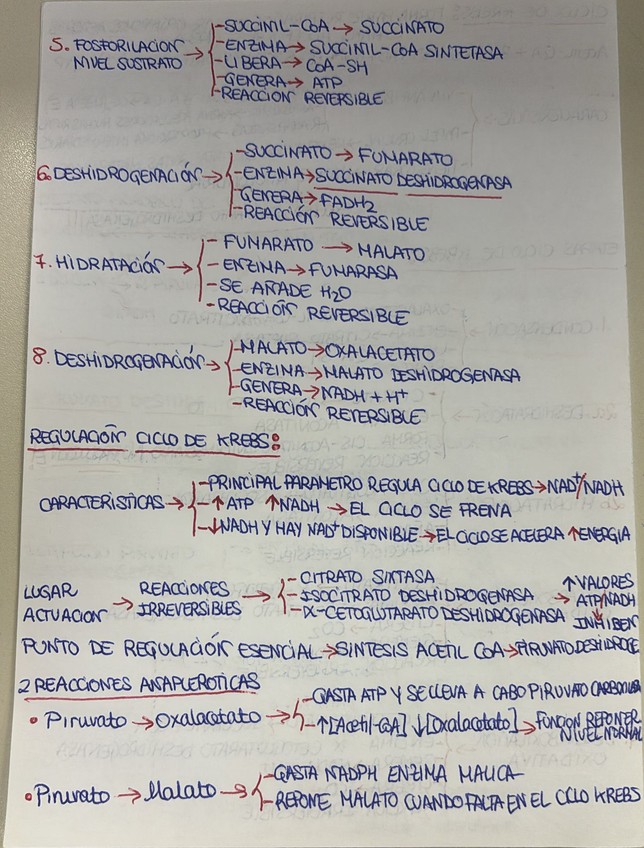 -SUCCINIL-CoA → SUCCINATO
5. FOSFORILACION NIVEL SUSTRATO → -ENZIMA → SUCCINIL-CoA SINTETASA
-LIBERA → CoA-SH
-GENERA → ATP
-REACCIÓN REVERSIBLE
-SUCCINATO → FUMARATO
6. DESHIDROGENACIÓN → -ENZIMA → SUCCINATO DESHIDROGENASA
GENERA → FADH2
-REACCIÓN REVERSIBLE
- FUMARATO → MALATO
7. HIDRATACIÓN → - ENZIMA → FUMARASA
- SE AÑADE H2O
- REACCIÓN REVERSIBLE
-MALATO → OXALACETATO
8. DESHIDROGENACIÓN → -ENZIMA → MALATO DESHIDROGENASA
-GENERA → NADH + H+
-REACCIÓN REVERSIBLE
REGULACIÓN CICLO DE KREBS:
-PRINCIPAL PARAMETRO REGULA CICLO DE KREBS → NAD+/NADH
CARACTERISTICAS → -↑ATP ↑NADH → EL CICLO SE FRENA
-↓NADH Y HAY NAD+ DISPONIBLE → EL CICLO SE ACELERA ↑ENERGIA
LUGAR ACTUACION → REACCIONES IRREVERSIBLES → - CITRATO SINTASA
- ISOCITRATO DESHIDROGENASA → ↑VALORES ATP/NADH
-α-CETOGLUTARATO DESHIDROGENASA ↓ INHIBEN
PUNTO DE REGULACIÓN ESENCIAL → SINTESIS ACETIL CoA → PIRUVATO DESHIDROGE
2 REACCIONES ANAPLEROTICAS
-GASTA ATP Y SE LLEVA A CABO PIRUVATO CARBOXILASA
• Piruvato → Oxalacetato → -↑[Acetil-CoA] ↓[Oxalacetato] → FUNCION REPONER NIVEL NORMAL
-GASTA NADPH ENZIMA MALICA
• Piruvato → Malato → - REPONE MALATO CUANDO FALTA EN EL CICLO KREBS